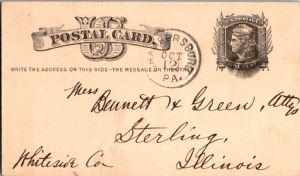 POSTAL CARD.
WRITE THE ADDRESS ON THIS SIDE - THE MESSAGE ON THE OTHER
OCT
PA.
Mess
Bennett & Green, Attys
Sterling,
Whiteside Co Illinois